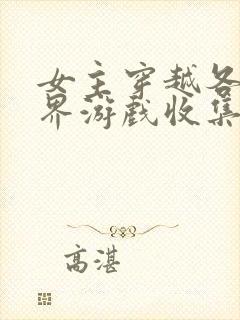 女主穿越各
界游戏收集
高湛